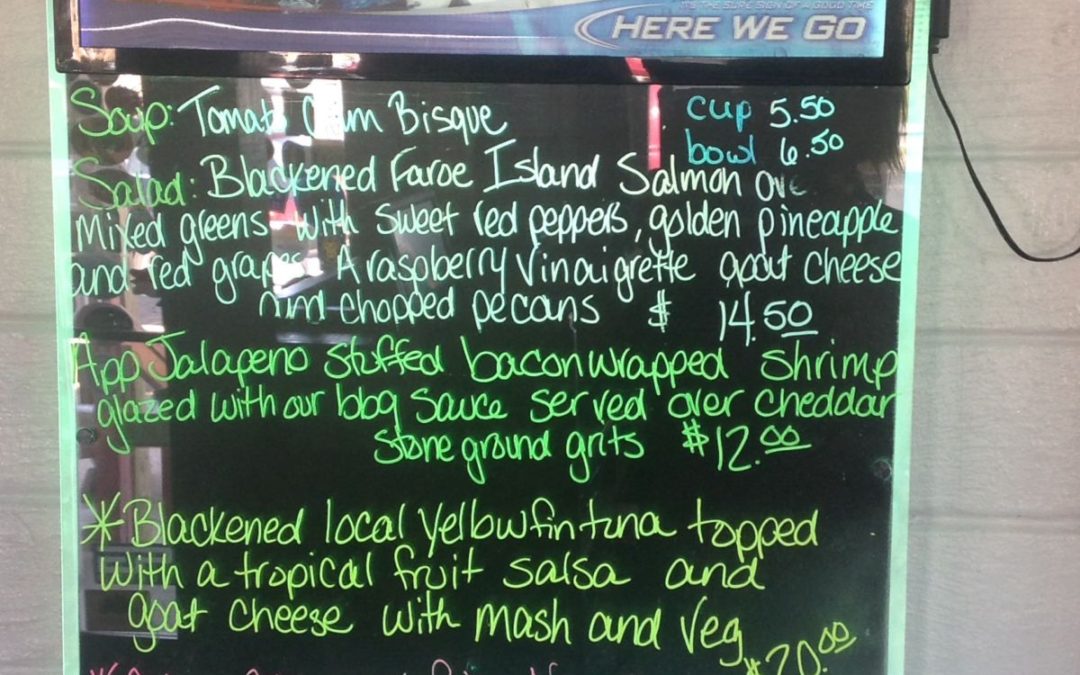 IT'S THE SURE SIGN OF A GOOD TIME
HERE WE GO
Soup: Tomato Clam Bisque cup 5.50
bowl 6.50
Salad: Blackened Faroe Island Salmon ove
Mixed greens with sweet red peppers, golden pineapple
and red grapes A raspberry Vinaigrette goat cheese
and chopped pecans $ 14.50
App Jalapeno stuffed bacon wrapped shrimp
glazed with our bbq sauce served over cheddar
stone ground grits $12.00
*Blackened local yellowfin tuna topped
with a tropical fruit salsa and
goat cheese with mash and veg
$20.00